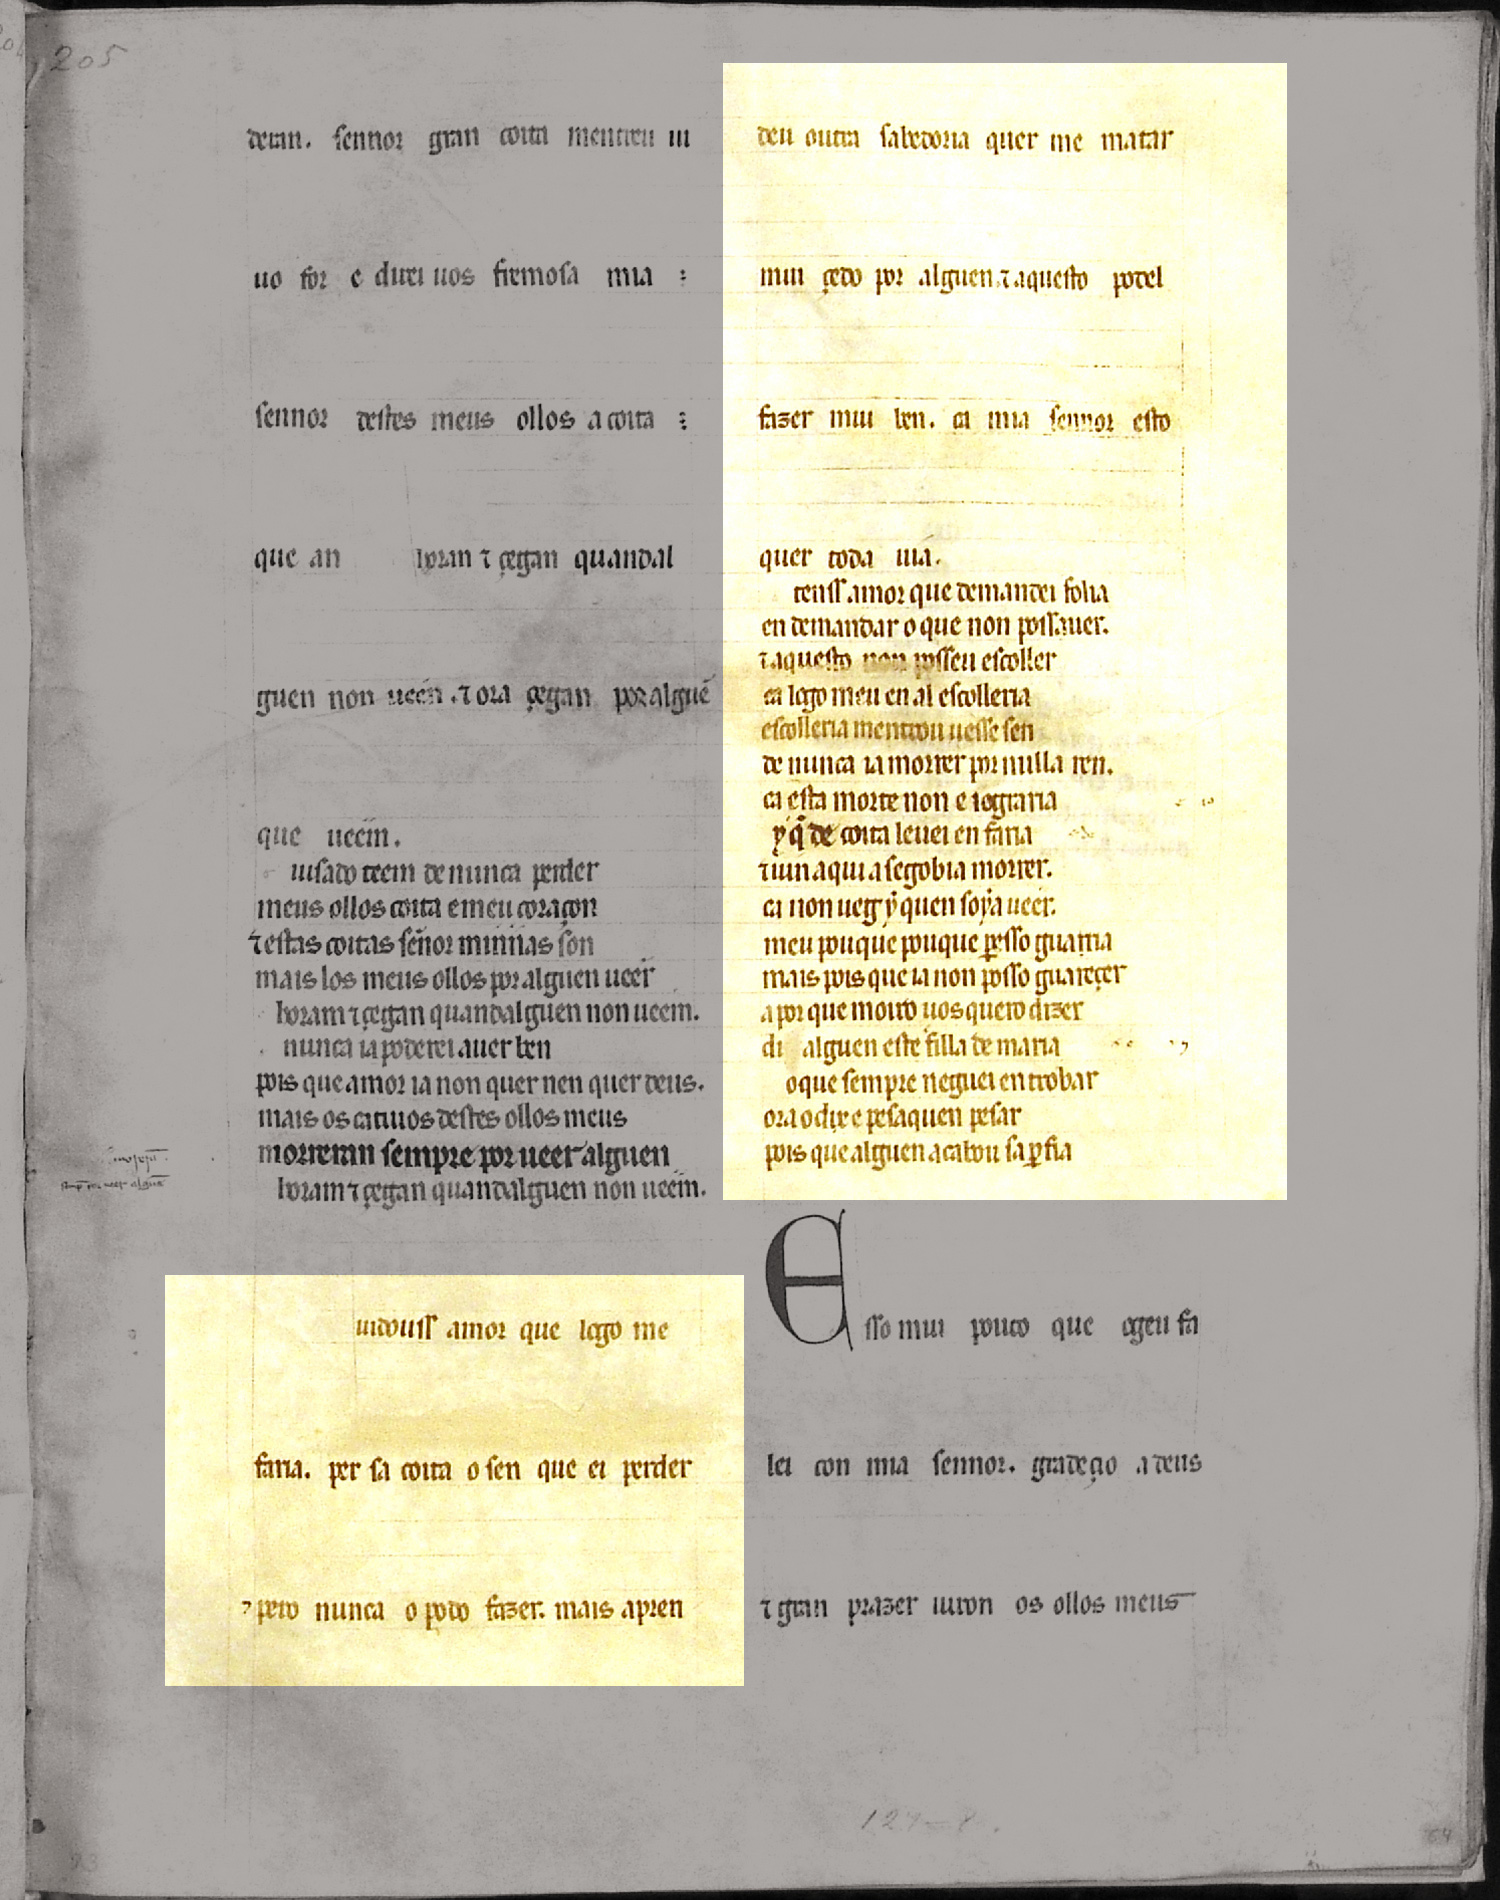 205
deran. sennor gran coita mentreu ui
uo for e direi uos fremosa mia :
sennor destes meus ollos a coita :
que an choran ⁊ çegan quandal
guen non ueen .⁊ ora çegan por alguẽ
que ueem.
uisado teem de nunca perder
meus ollos coita e meu coraçon
⁊ estas coitas señor minnas son
mais los meus ollos por alguen ueer
horam ⁊ çegan quandalguen non ueem.
nunca ia poderei auer ben
pois que amor ia non quer nen quer deus.
mais os catiuos destes ollos meus
morreran sempre por ueer alguen
horam ⁊ çegan quandalguen non ueem.
uidouss amor que logo me
faria. per sa coita o sen que ei perder
⁊ pero nunca o podo fazer. mais apren
deu outra sabedoria quer me matar
mui çedo por alguen.⁊ aquesto podel
fazer mui ben. ca mia sennor esto
quer toda uia.
tenss amor que demandei folia
en demandar o que non possauer.
⁊ aquesto non posseu escoller
ca logo meu en al escolleria
escolleria mentrou uesse sen
de nunca ia morrer por nulla ren.
ca esta morte non e iograria
y q̃ de coita leuei en faria
⁊ uin aqui a segobia morrer.
ca non uegẏ quen soẏa ueer.
meu pouque pouque ꝑesso guarria
mais pois que ia non posso guareçer
a por que moiro uos quero dizer
di alguen este filla de maria
o que sempre neguei en trobar
ora o dire e pesaquen pesar
pois que alguen acabou sa ꝑfia
Esso mui pouco que ogeu fa
lei con mia sennor. gradeçio a deus
⁊ gran prazer uiron os ollos meus